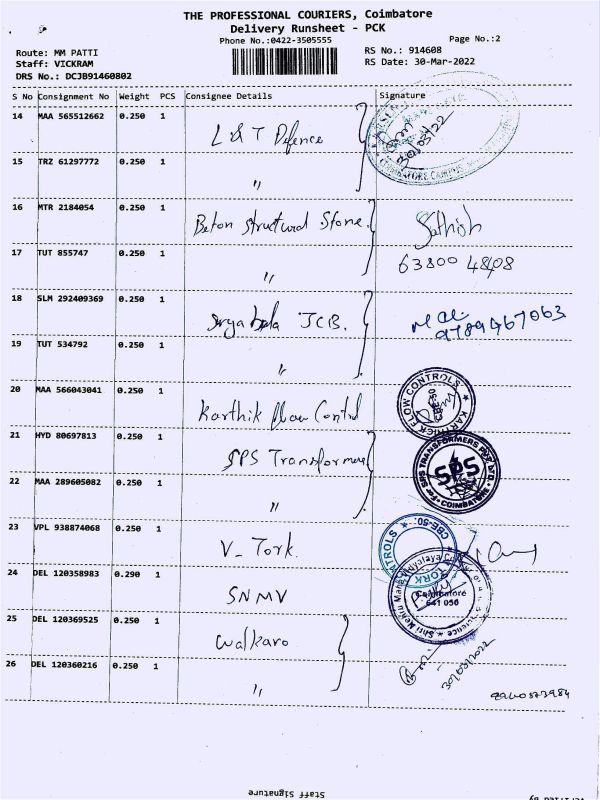 THE PROFESSIONAL COURIERS, Coimbatore
Delivery Runsheet - PCK
Phone No.:0422-3505555
Page No.:2
Route: MM PATTI
RS No.: 914608
Staff: VICKRAM
RS Date: 30-Mar-2022
DRS No.: DCJB91460802
S No Consignment No Weight PCS Consignee Details Signature
14 MAA 565512662 0.250 1
L & T Defence
30/03/22
15 TRZ 61297772 0.250 1
"
16 MTR 2184054 0.250 1
Beton Structural Stone
Sathish
17 TUT 855747 0.250 1
63800 4808
"
18 SLM 292409369 0.250 1
Suryabala JCB.
9789467063
19 TUT 534792 0.250 1
"
20 MAA 566043041 0.250 1
Karthik flow Control
KARTHICK FLOW CONTROLS
CBE-50
21 HYD 80697813 0.250 1
SPS Transformers
For SPS TRANSFORMERS PVT LTD
SPS
COIMBATORE
22 MAA 289605082 0.250 1
"
23 VPL 938874068 0.250 1
V-Tork.
CBE-50
24 DEL 120358983 0.290 1
SNMV
Coimbatore
641 050
25 DEL 120369525 0.250 1
Walkaro
26 DEL 120360216 0.250 1
"
30/03/2022
Staff Signature